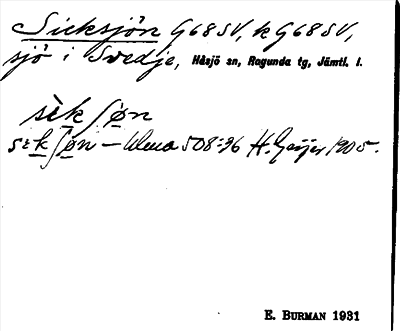 Sicksjön G68SV, k G68SV,
sjö i Svedje, Håsjö sn, Ragunda tg, Jämtl. l.
sèkʃøn
sɛkʃøn – Ulma 508:36 H. Geijer 1905.
E. BURMAN 1931